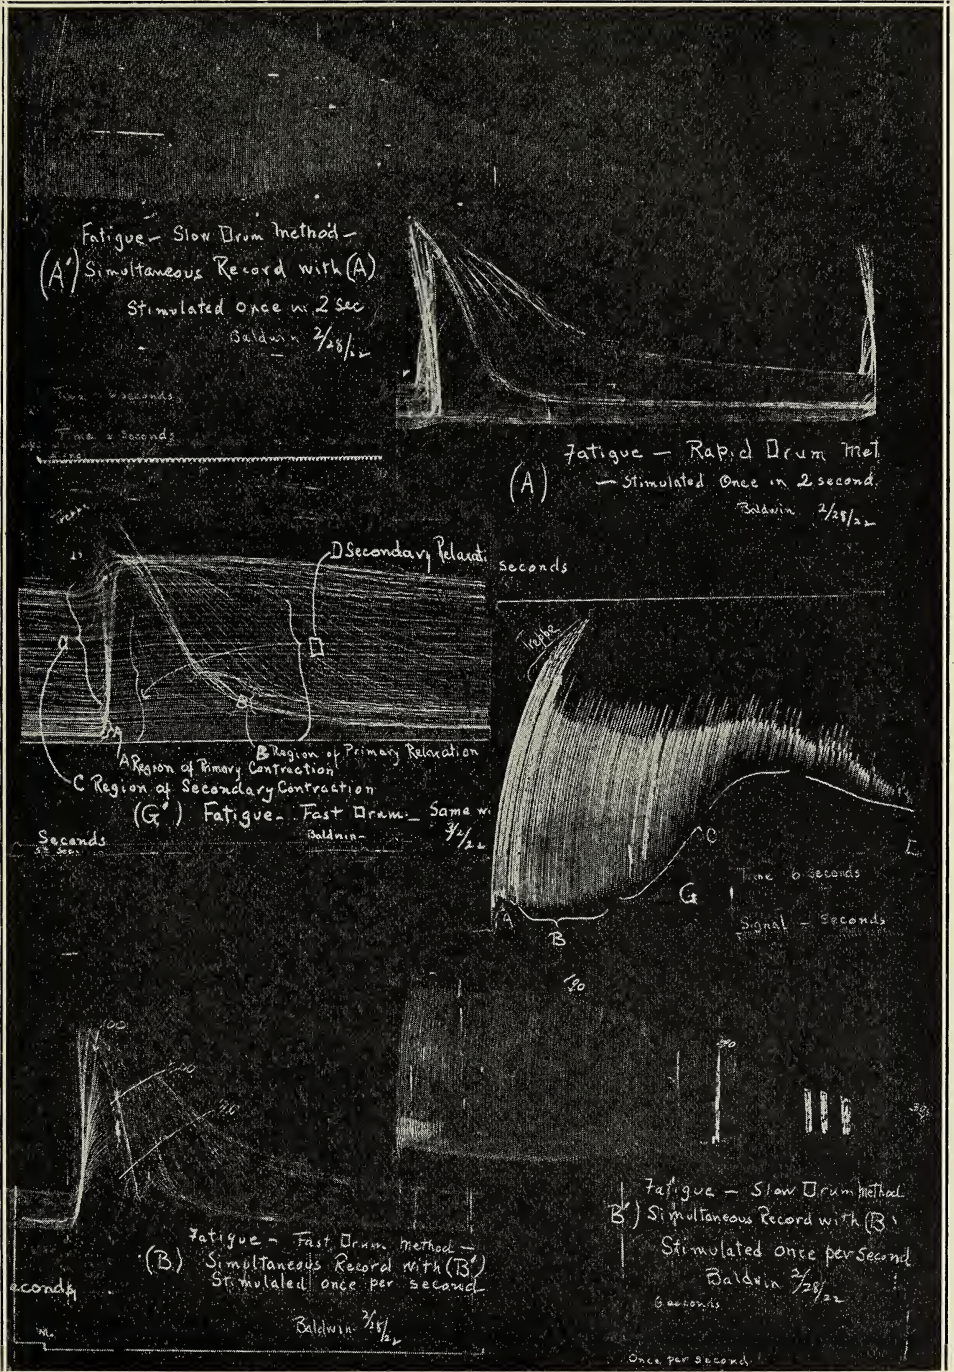 Fatigue - Slow Drum Method -
(A') Simultaneous Record with (A)
Stimulated once in 2 sec
Baldwin 2/28/22
Time 2 seconds
Fatigue - Rapid Drum Met
(A) - Stimulated Once in 2 second
Baldwin 2/28/22
Treppe
D Secondary Relaxati
C
B
A
B Region of Primary Relaxation
A Region of Primary Contraction
C Region of Secondary Contraction
(G') Fatigue - Fast Drum - Same wi
Baldwin - 3/2/22
Seconds
seconds
Treppe
A
B
C
G
Time 6 seconds
Signal - Seconds
100
(B) Fatigue - Fast Drum method -
Simultaneous Record with (B')
Stimulated once per second
Baldwin 2/28/22
econds
190
Fatigue - Slow Drum method
B') Simultaneous Record with (B
Stimulated once per second
Baldwin 2/28/22
6 seconds
Once per second